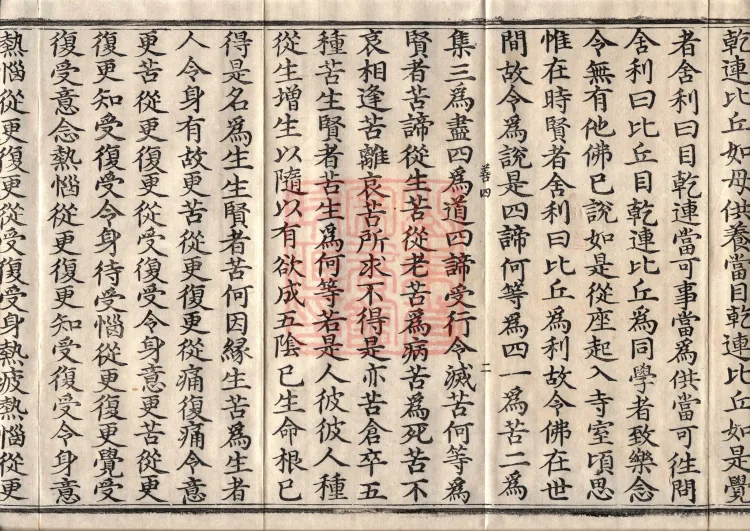 乾連比丘如母供養當目乾連比丘如是覺
者舍利曰目乾連當可事當為供當可徃問
舍利曰比丘目乾連比丘為同學者致樂念
令無有他佛已說如是從座起入寺室頃思
惟在時賢者舍利曰比丘為利故令佛在世
間故令為說是四諦何等為四一為苦二為
集三為盡四為道四諦受行令滅苦何等為
善四
二
賢者苦諦從生苦從老苦為病苦為死苦不
哀相逢苦離哀苦所求不得是亦苦倉卒五
種苦生賢者苦生為何等若是人彼彼人種
從生增生以隨以有欲成五陰已生命根已
得是名為生生賢者苦何因緣生苦為生者
人令身有故更苦從更復更從痛復痛令意
更苦從更復更從受復受令身意更苦從更
復更知受復受令身待受惱從更復更覺受
復受意念熱惱從更復更知受復受令身意
熱惱從更復更從受復受身熱疲熱惱從更